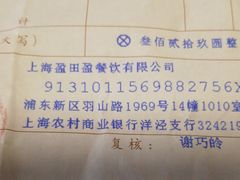 计
大写）
ⓧ叁佰贰拾玖圆整
上海盈田盈餐饮有限公司
9131011569882756X
浦东新区羽山路1969号14幢1010室
上海农村商业银行洋泾支行324219
复核：谢巧皊